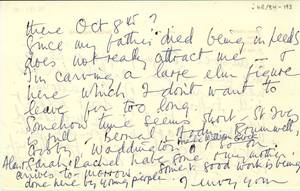 there Oct 8th?
Since my father died being in Leeds
does not really attract me -
I'm carving a large elm figure
here which I don't want to
leave for too long
Somehow time seems short. St Ives
still Bernal
Waddington
Alan Sarah Rachel have gone & my mother
arrives to-morrow Some v. good work is being
done here by young people.